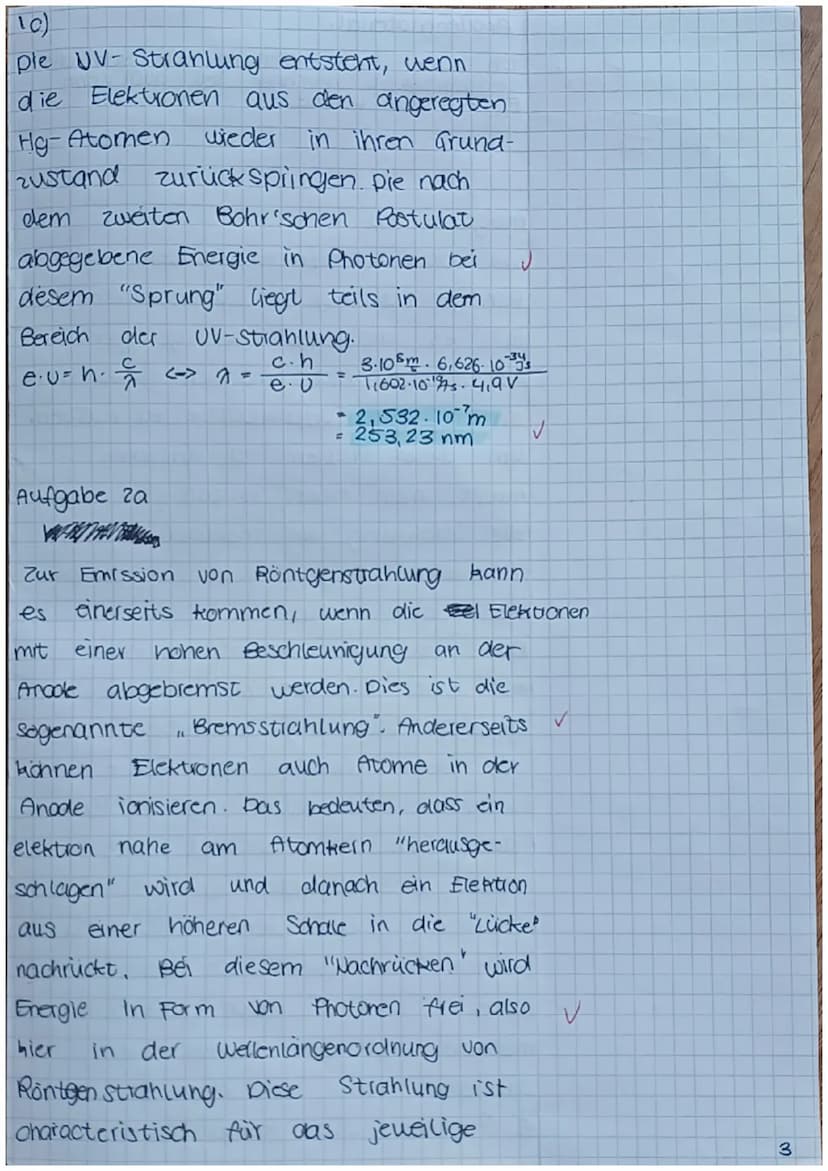 1c)
Die UV-Strahlung entsteht, wenn
die Elektronen aus den angeregten
Hg-Atomen wieder in ihren Grund-
zustand zurückspringen. Die nach
dem zweiten Bohr'schen Postulat
abgegebene Energie in Photonen bei
diesem "Sprung" liegt teils in dem
Bereich der UV-Strahlung.
e·U = h · c/λ <-> λ = c·h / e·U = 3·10⁸ m/s · 6,626·10⁻³⁴Js / 1,602·10⁻¹⁹As · 4,9V
= 2,532·10⁻⁷m
= 253,23 nm
Aufgabe 2a
Zur Emission von Röntgenstrahlung kann
es einerseits kommen, wenn die Elektronen
mit einer hohen Beschleunigung an der
Anode abgebremst werden. Dies ist die
sogenannte „Bremsstrahlung". Andererseits
können Elektronen auch Atome in der
Anode ionisieren. Das bedeuten, dass ein
elektron nahe am Atomkern "herausge-
schlagen" wird und danach ein Elektron
aus einer höheren Schale in die "Lücke"
nachrückt. Bei diesem "Nachrücken" wird
Energie in Form von Photonen frei, also
hier in der Wellenlängenordnung von
Röntgenstrahlung. Diese Strahlung ist
characteristisch für das jeweilige
3